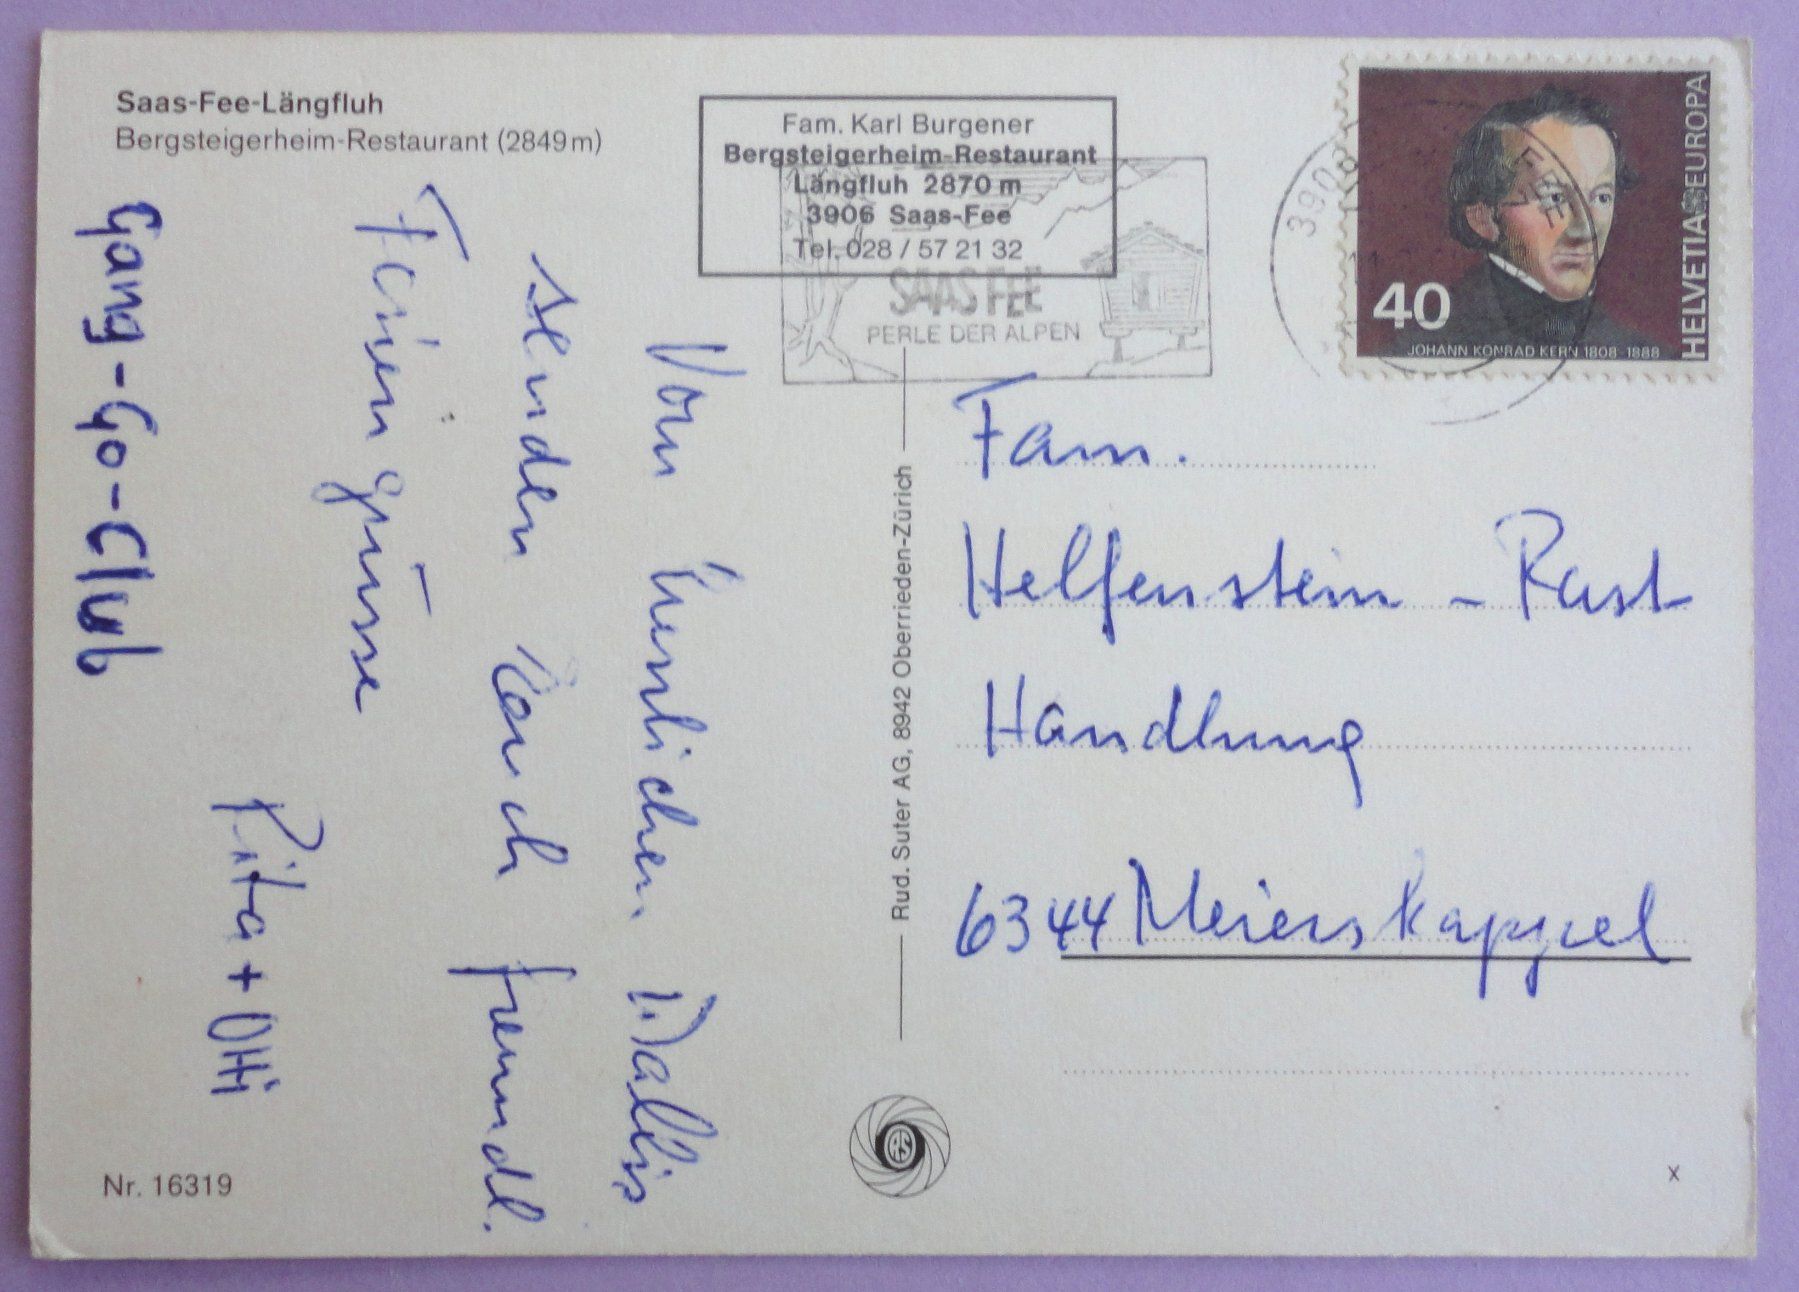 Saas-Fee-Längfluh
Bergsteigerheim-Restaurant (2849 m)
Fam. Karl Burgener
Bergsteigerheim-Restaurant
Längfluh 2870 m
3906 Saas-Fee
Tel. 028 / 57 21 32
SAAS FEE
PERLE DER ALPEN
3906
FEE
HELVETIA EUROPA
40
JOHANN KONRAD KERN 1808-1888
Vom herrlichen Wallis
senden Euch freundl.
Feriengrüsse
Rita + Otti
Gang-Go-Club
Rud. Suter AG, 8942 Oberrieden-Zürich
Fam.
Helfenstein - Rast
Handlung
6344 Meierskappel
Nr. 16319
x